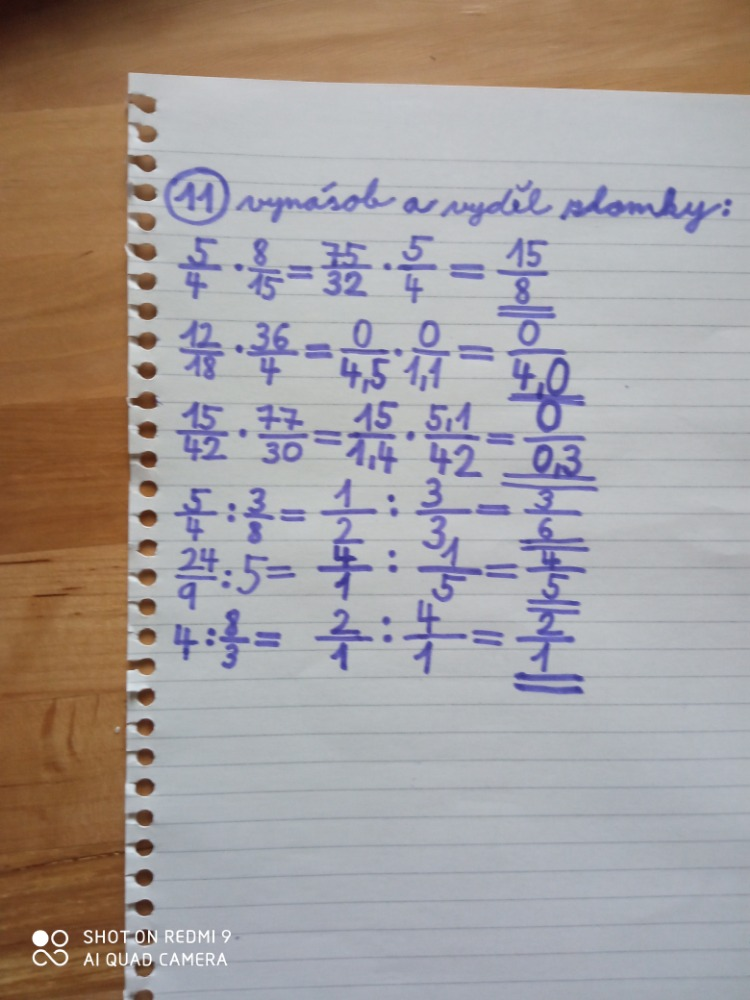 11 vynásob a vyděl zlomky:
5/4 · 8/15 = 75/32 · 5/4 = 15/8
12/18 · 36/4 = 0/4,5 · 0/1,1 = 0/4,0
15/42 · 77/30 = 15/1,4 · 5,1/42 = 0/0,3
5/4 : 3/8 = 1/2 : 3/3 = 3/6
24/9 : 5 = 4/1 : 1/5 = 4/5
4 : 8/3 = 2/1 : 4/1 = 2/1
SHOT ON REDMI 9
AI QUAD CAMERA